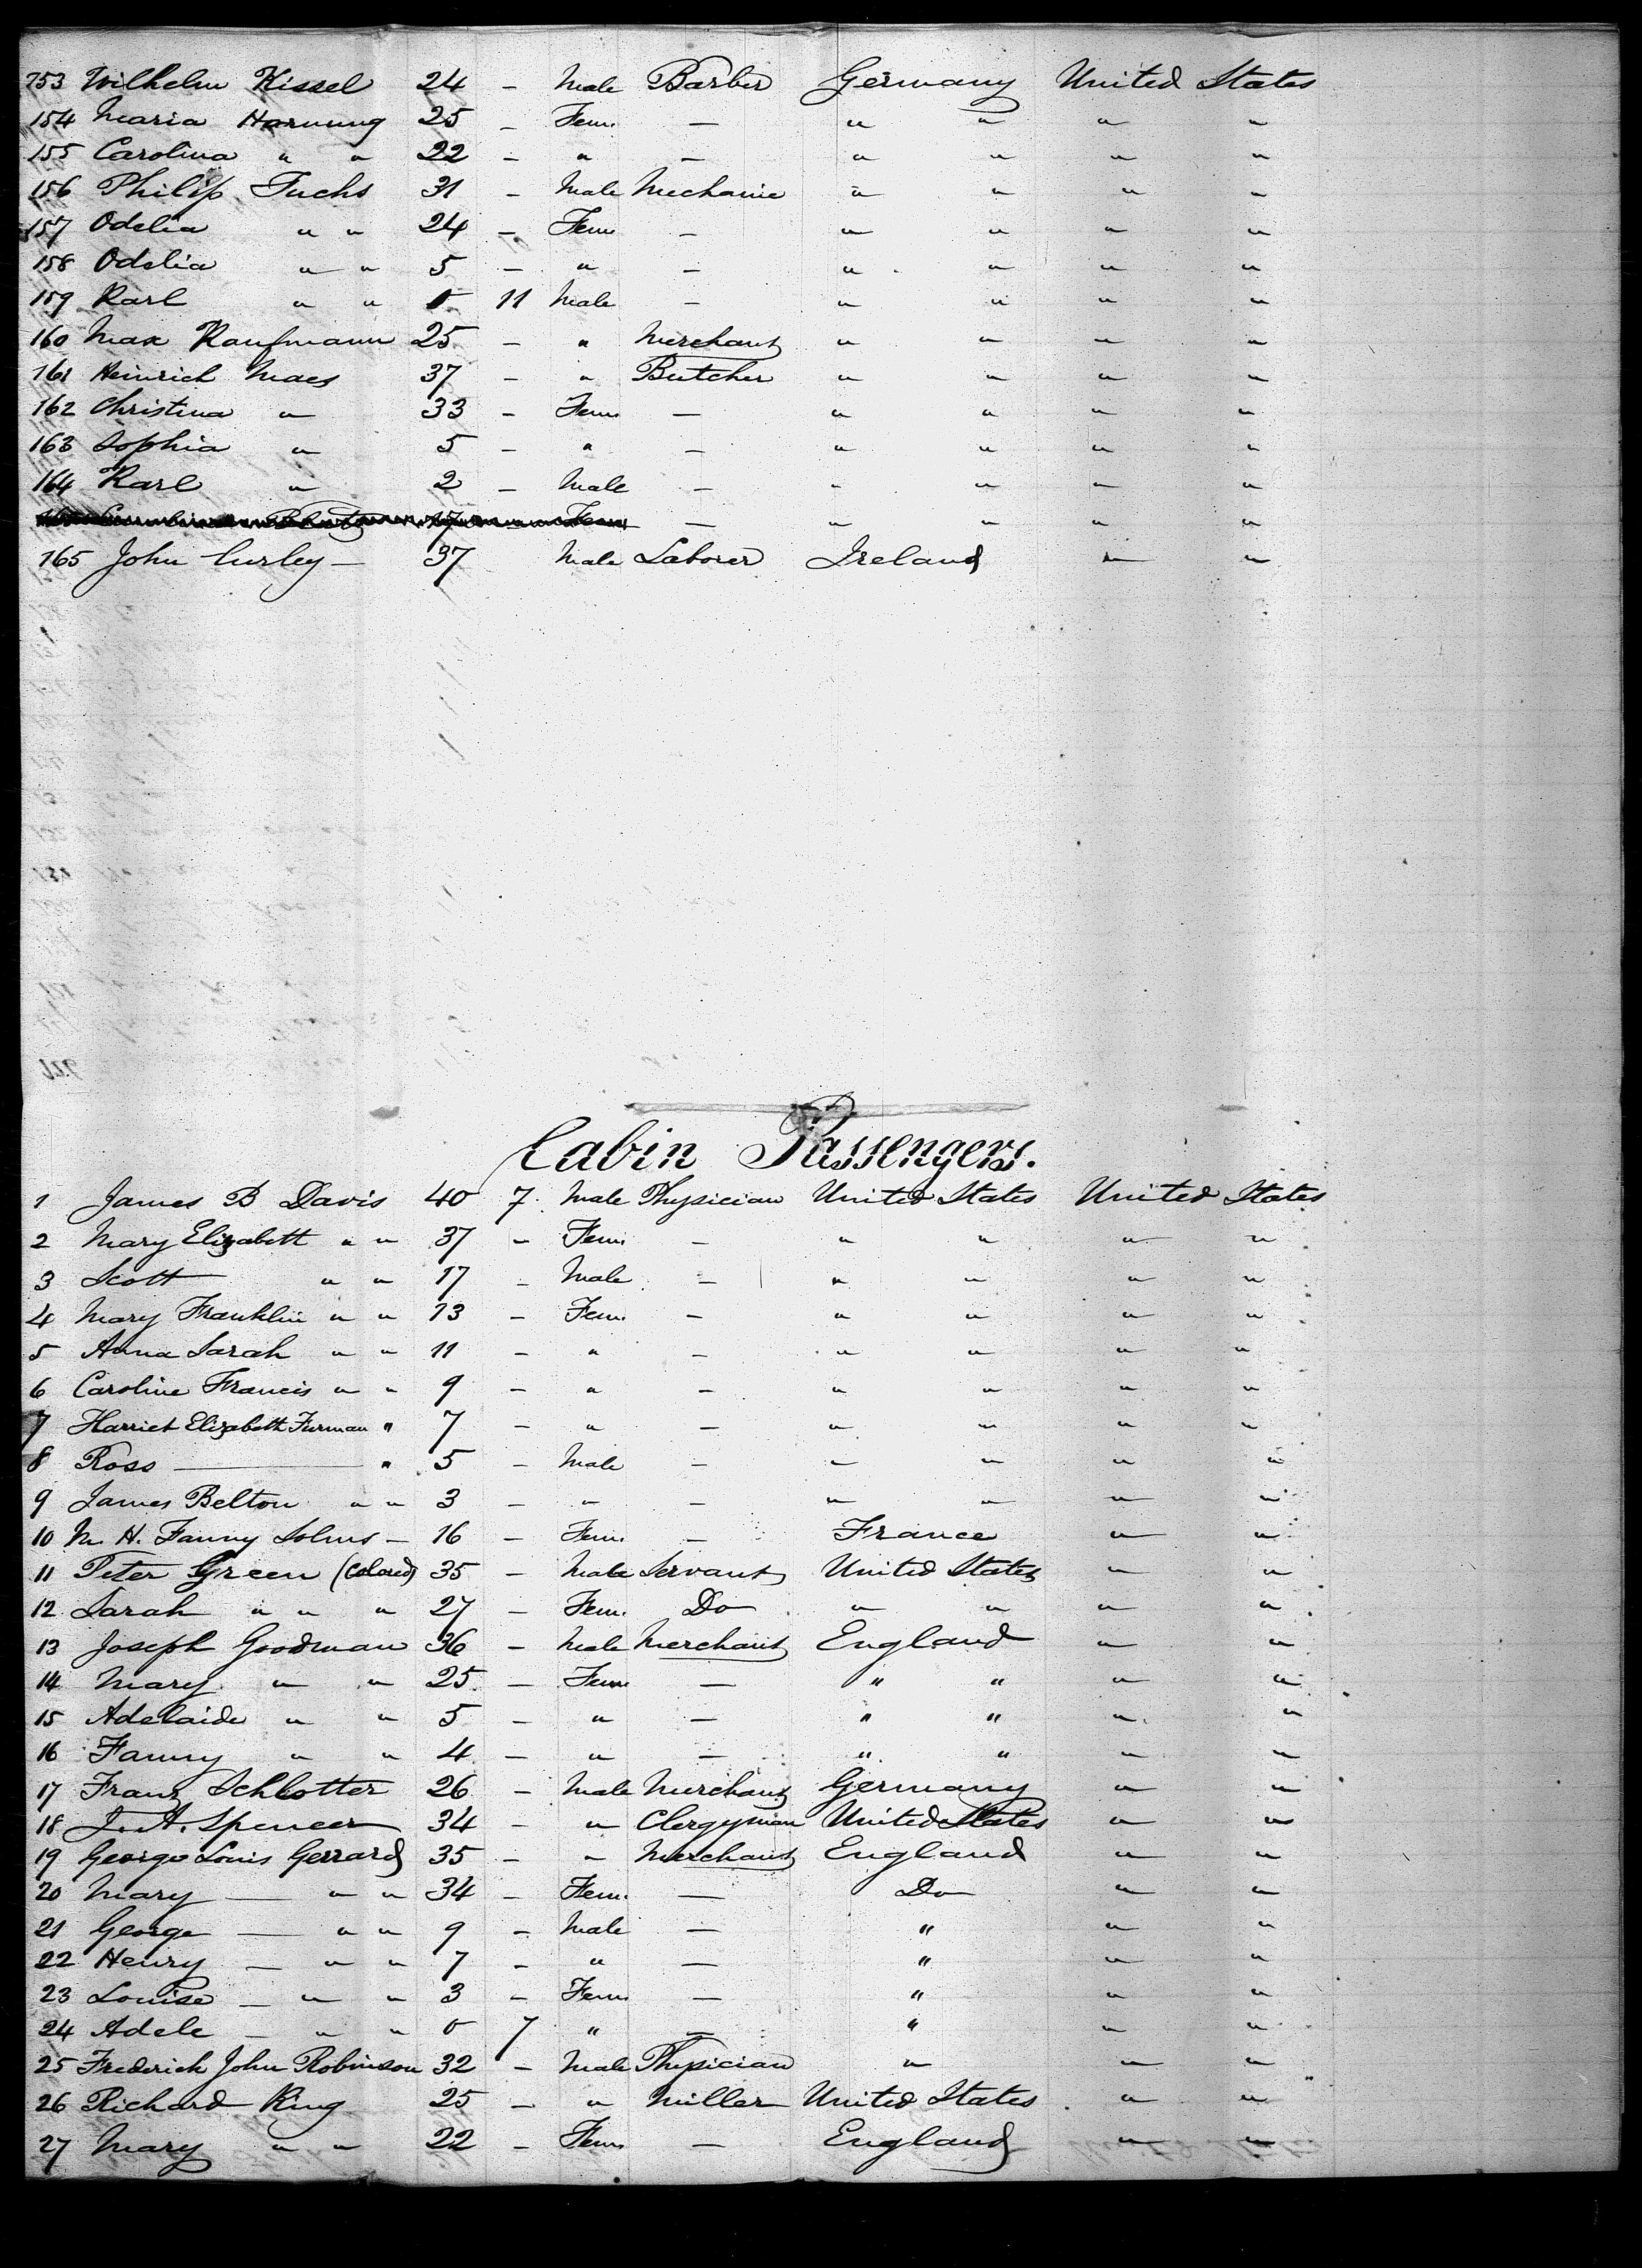 153 Wilhelm Kissel 24 - Male Barber Germany United States
154 Maria Harnung 25 - Fem. — " " " "
155 Carolina " " 22 - " — " " " "
156 Philip Fuchs 31 - Male Mechanic " " " "
157 Odelia " " 24 - Fem - " " " "
158 Odelia " " 5 - " - " " " "
159 Karl " " 0 11 Male - " " " "
160 Max Kaufmann 25 - " Merchant " " " "
161 Heinrich Maes 37 - " Butcher " " " "
162 Christina " 33 - Fem — " " " "
163 Sophia " 5 - " - " " " "
164 Karl " 2 - Male - " " " "
Fem — " " " "
165 John Curley — 37 Male Laborer Ireland " "
Cabin Passengers.
1 James B Davis 40 7. Male Physician United States United States
2 Mary Elizabeth " " 37 - Fem. - " " " "
3 Scott " " 17 - Male - " " " "
4 Mary Franklin " " 13 - Fem. - " " " "
5 Anna Sarah " " 11 - " - " " " "
6 Caroline Francis " " 9 - " - " " " "
7 Harriet Elizabeth Furman " 7 - " - " " " "
8 Ross — " 5 - Male - " " " "
9 James Belton " " 3 - " - " " " "
10 M. H. Fanny Solms - 16 - Fem. - France " "
11 Peter Green (Colored) 35 - Male Servant United States " "
12 Sarah " " " 27 - Fem. Do " " " "
13 Joseph Goodman 36 - Male Merchant England " "
14 Mary " " 25 - Fem — " " " "
15 Adelaide " " 5 - " — " " " "
16 Fanny " " 4 - " — " " " "
17 Franz Schlotter 26 - Male Merchant Germany " "
18 J. A. Spencer 34 - " Clergyman United States " "
19 George Louis Gerrard 35 - " Merchant England " "
20 Mary — " " 34 - Fem. — Do " "
21 George — " " 9 - Male — " " "
22 Henry — " " 7 - " — " " "
23 Louise — " " 3 - Fem — " " "
24 Adele — " " 0 7 " — " " "
25 Frederich John Robinson 32 - Male Physician " " "
26 Richard King 25 - " Miller United States " "
27 Mary " " 22 - Fem — England " "